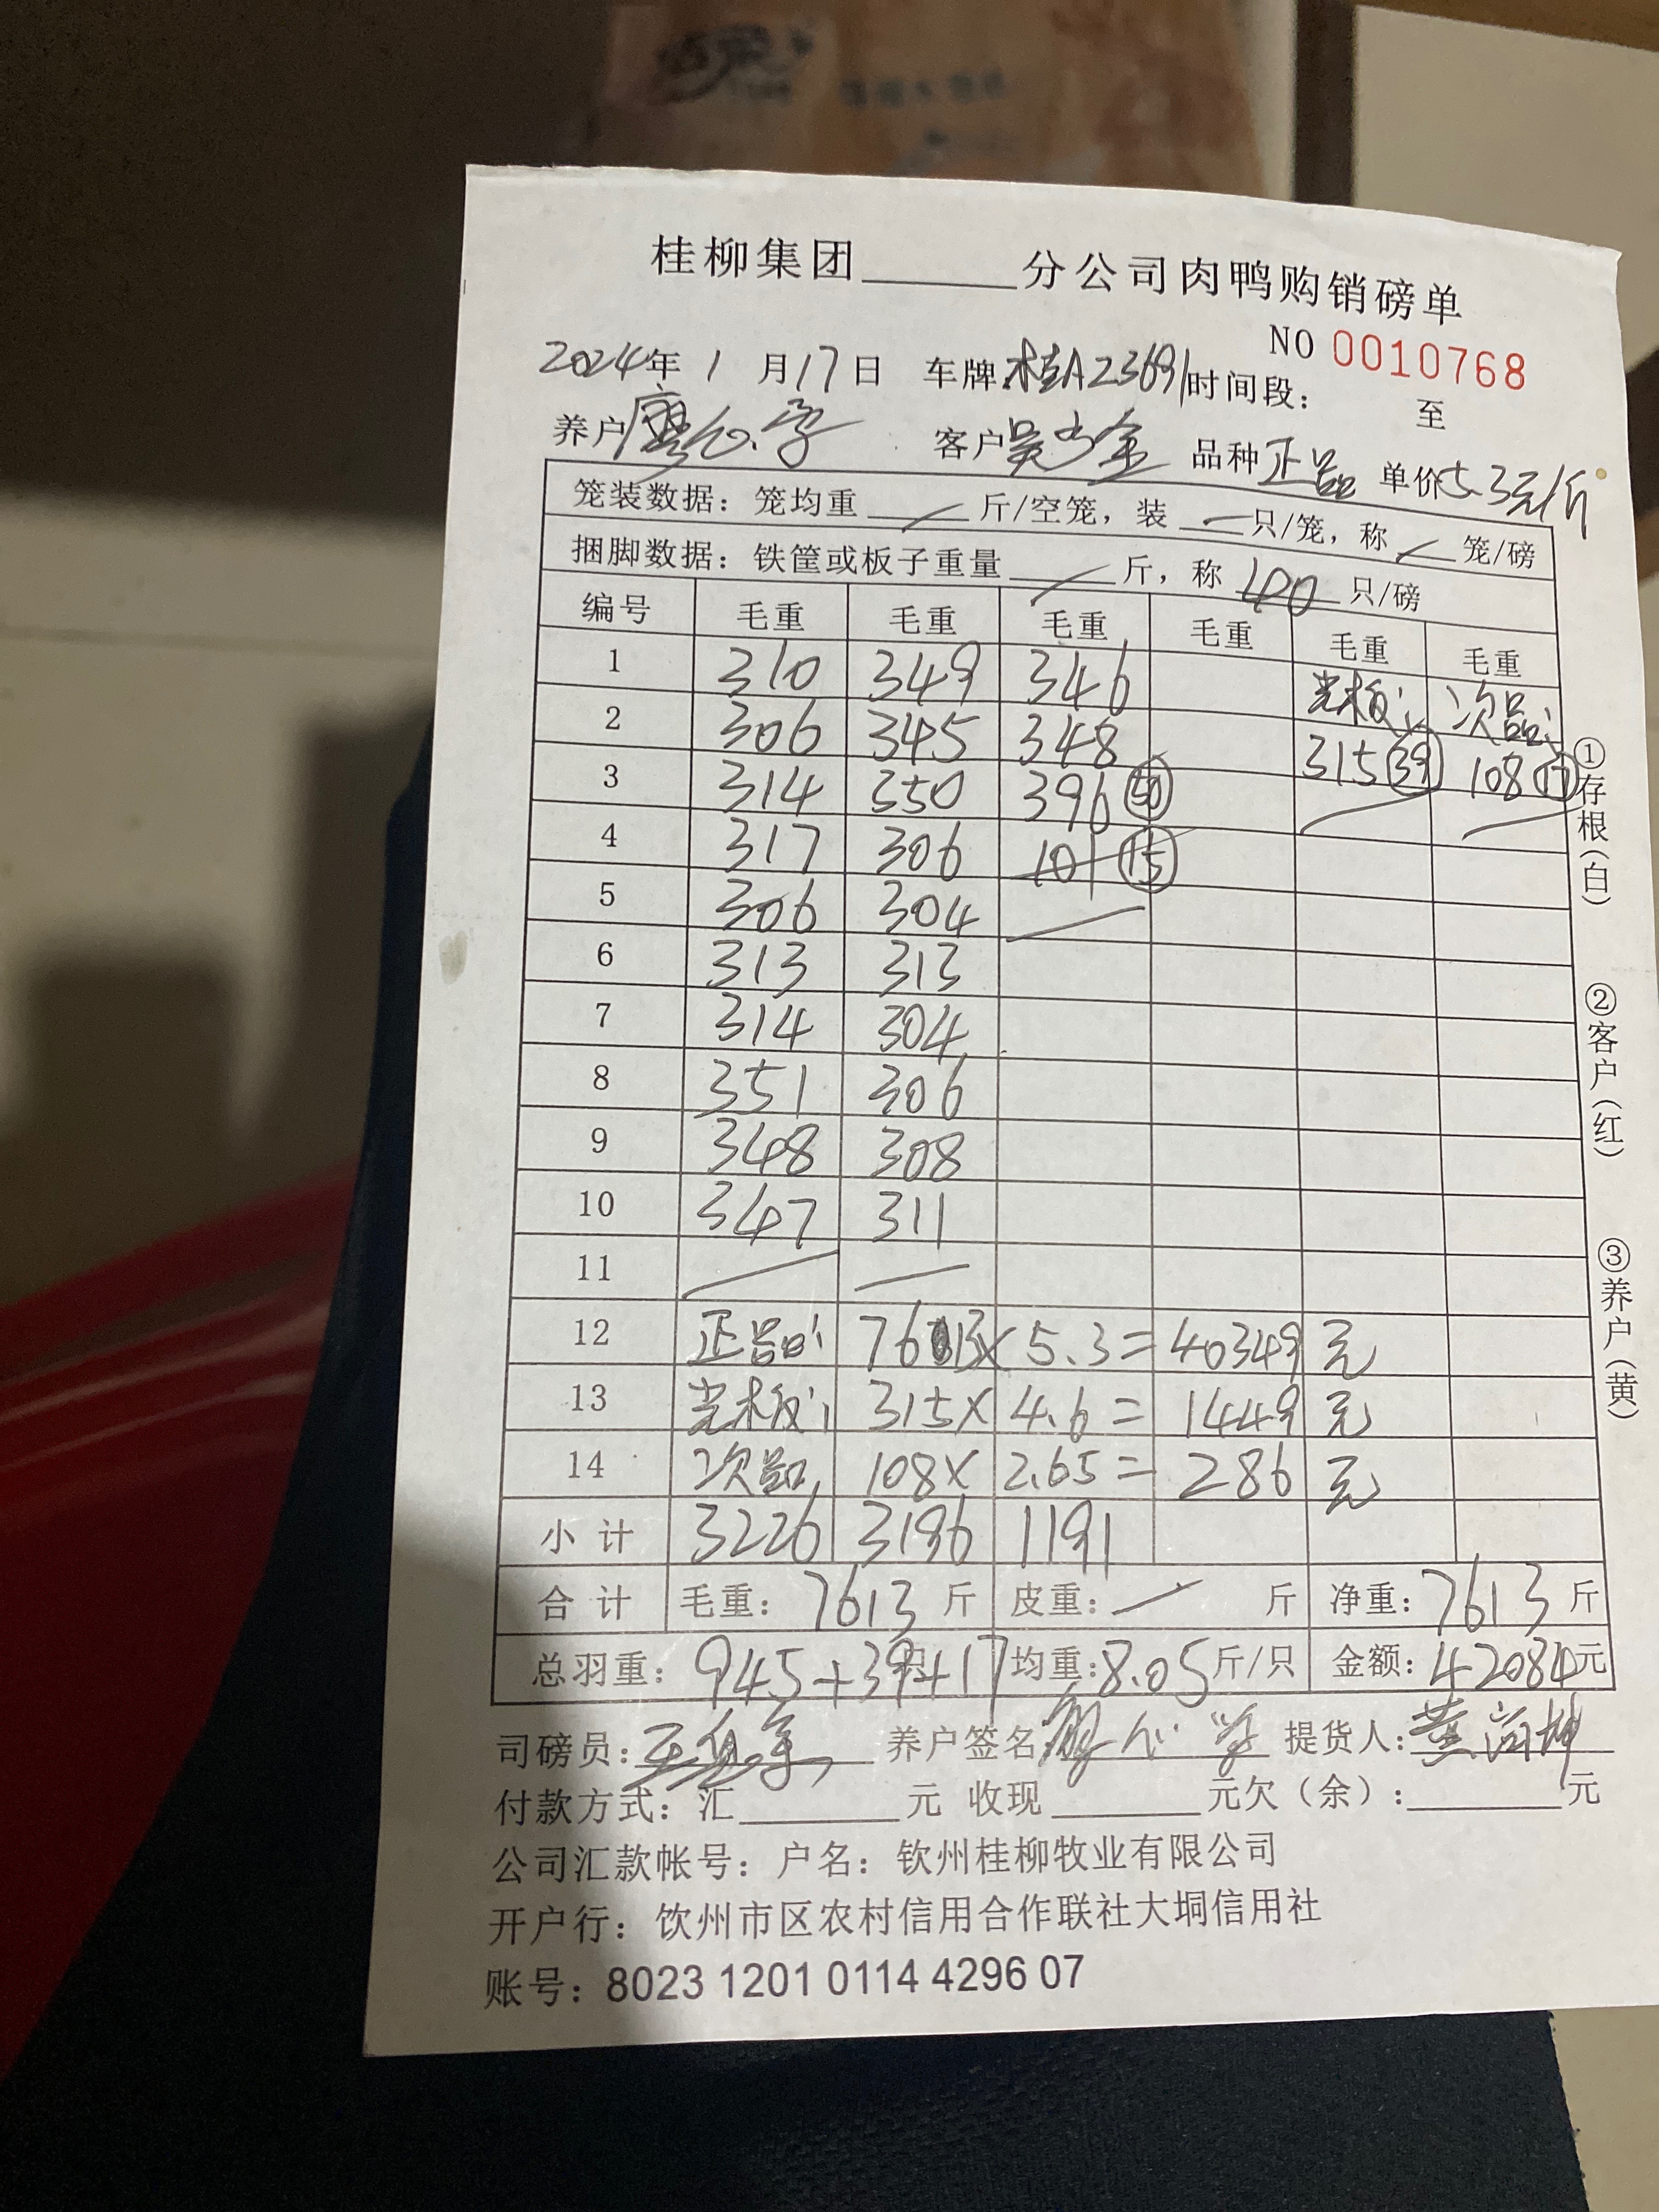 桂柳集团______分公司肉鸭购销磅单
NO 0010768
2024年 1 月17日 车牌:桂A23691 时间段: 至
养户 客户 吴少金 品种 正品 单价5.3元/斤
笼装数据:笼均重 / 斤/空笼,装 / 只/笼,称 / 笼/磅
捆脚数据:铁筐或板子重量 / 斤,称 40 只/磅
编号 毛重 毛重 毛重 毛重 毛重 毛重
1 310 349 346 光板: 次品:
2 306 345 348 315 39 108 17
3 314 350 396 50
4 317 306 101 15
5 306 304
6 313 313
7 314 304
8 351 306
9 348 308
10 347 311
11
12 正品: 7613× 5.3= 40349 元
13 光板: 315× 4.6= 1449 元
14 次品 108× 2.65= 286 元
小计 3226 3196 1191
合计 毛重:7613 斤 皮重:/ 斤 净重:7613 斤
总羽重:945+39+17 均重:8.05斤/只 金额:42084元
司磅员: 养户签名 提货人:
付款方式:汇______元 收现______元欠(余):______元
公司汇款帐号:户名:钦州桂柳牧业有限公司
开户行:钦州市区农村信用合作联社大垌信用社
账号:8023 1201 0114 4296 07
①存根(白)
②客户(红)
③养户(黄)